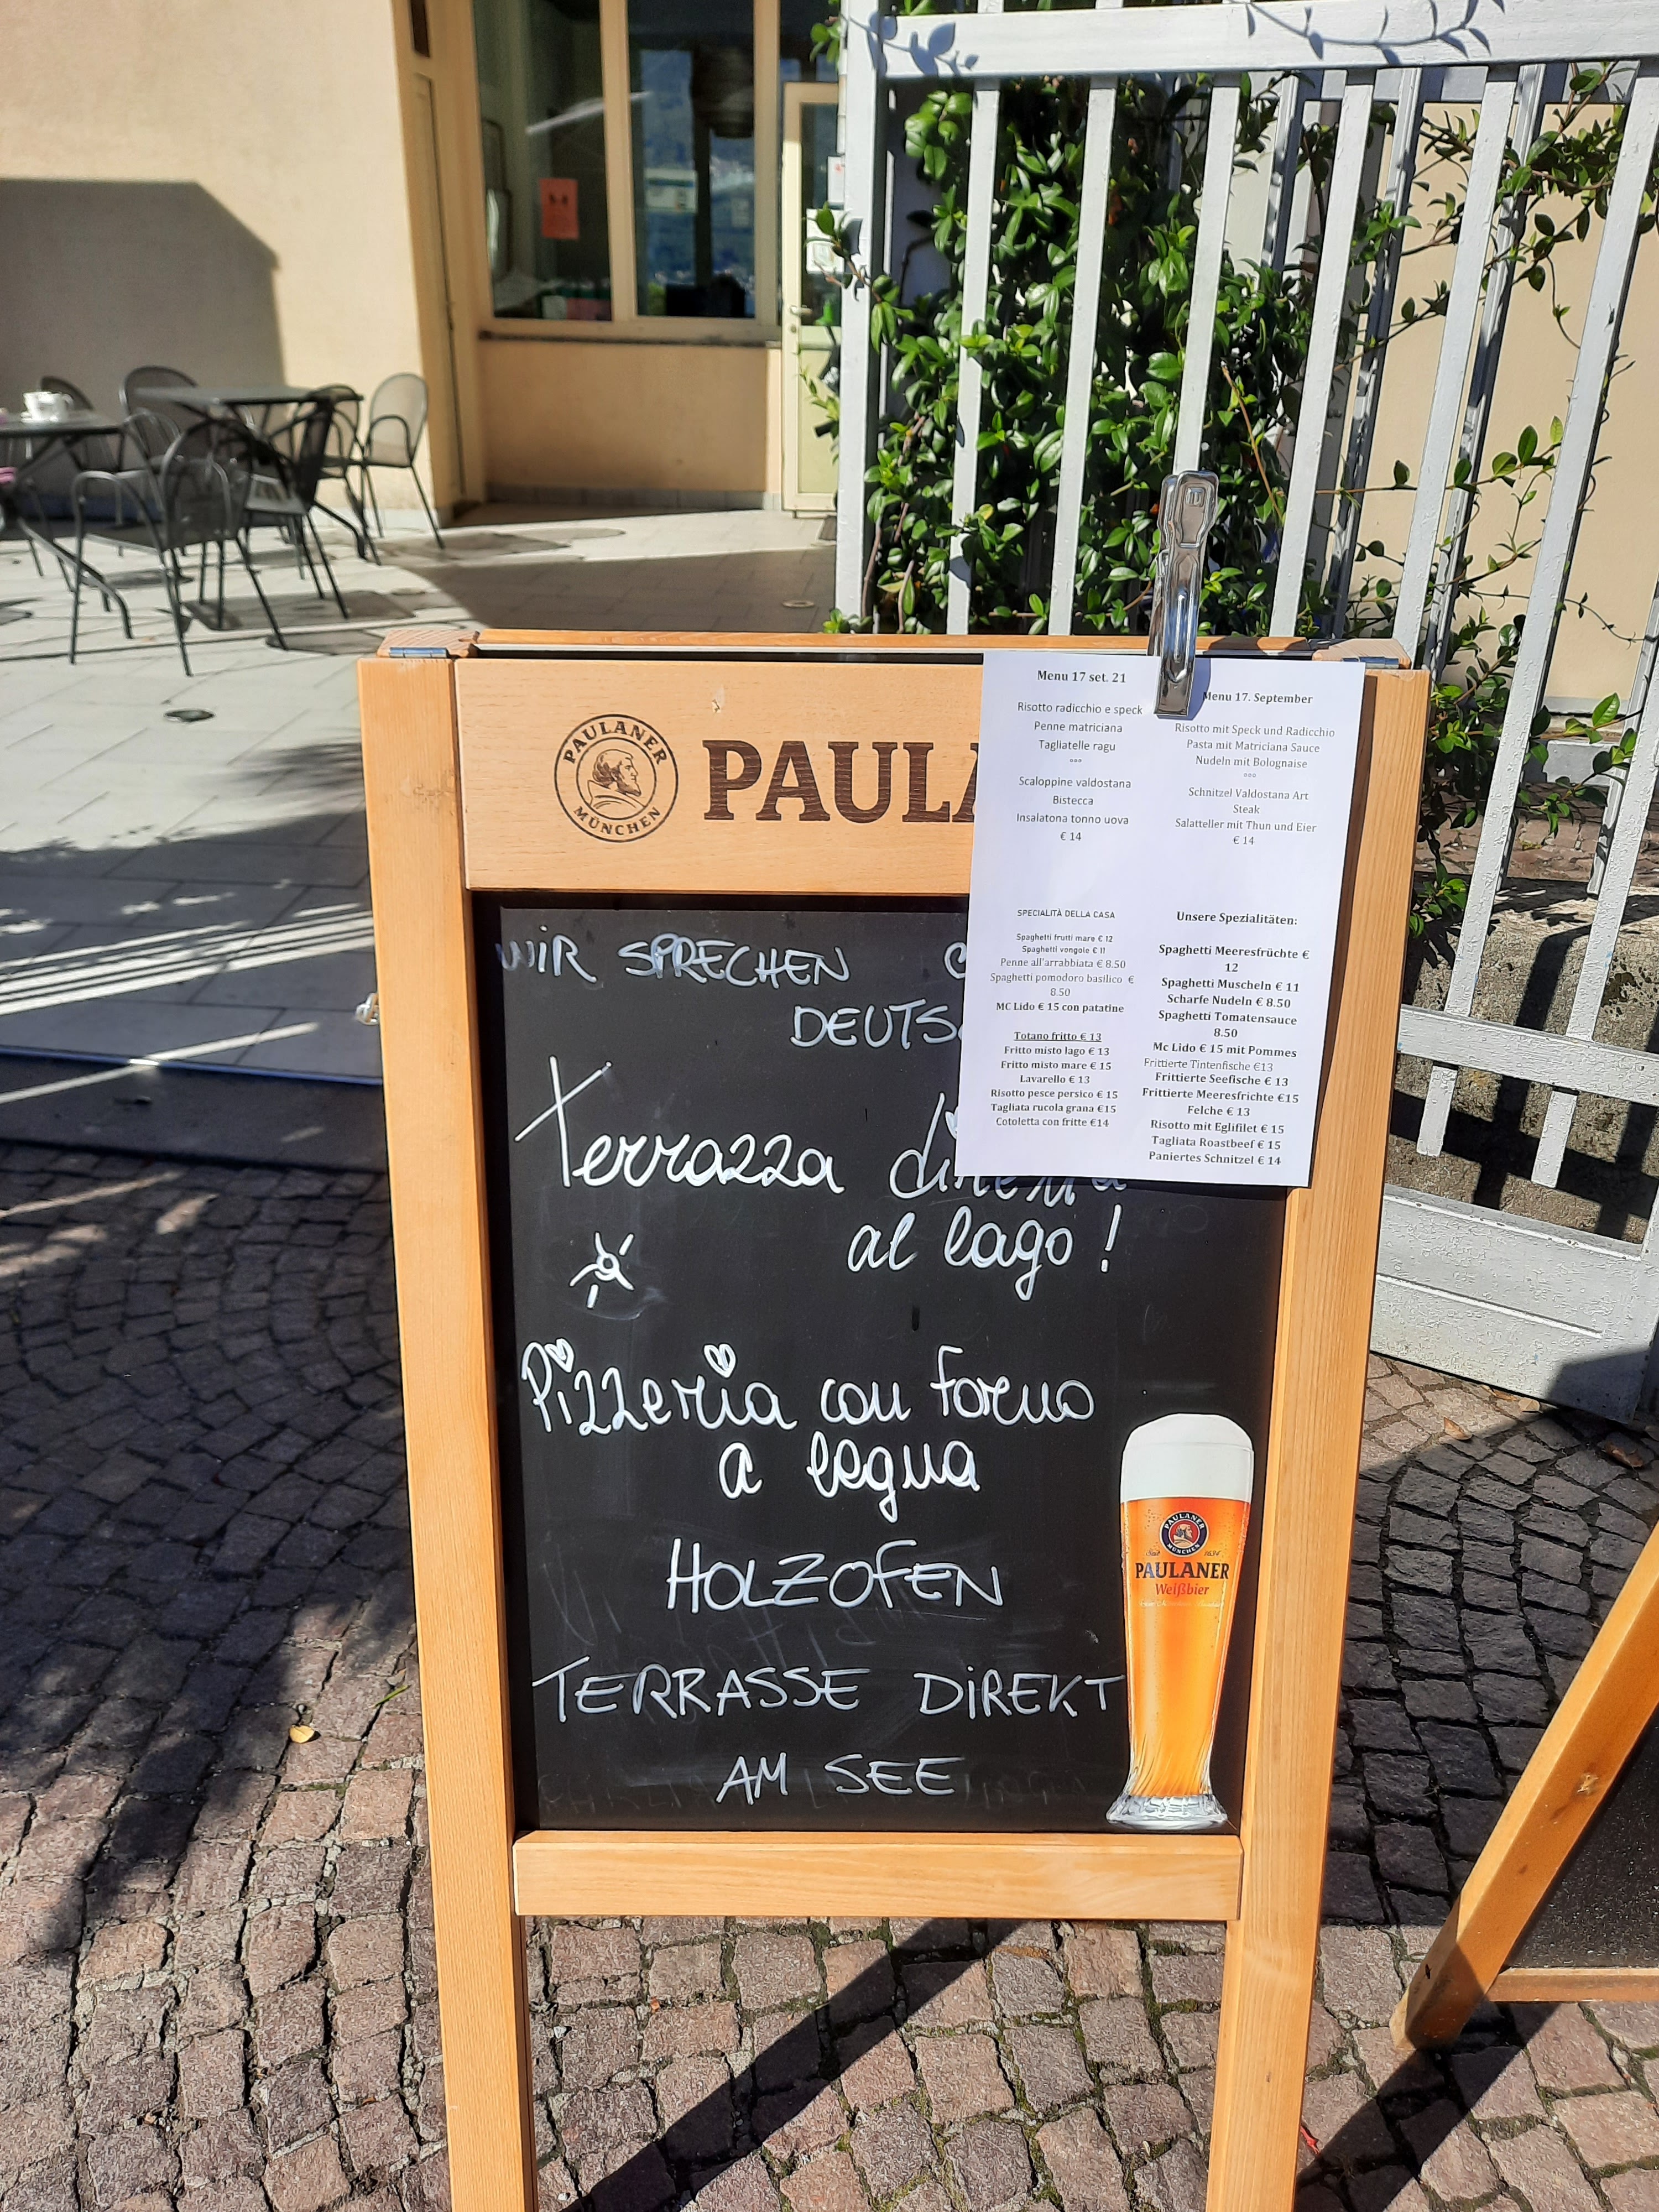 PAULANER
MÜNCHEN
PAULA
Menu 17 set. 21
Risotto radicchio e speck
Penne matriciana
Tagliatelle ragu
°°°
Scaloppine valdostana
Bistecca
Insalatona tonno uova
€ 14
Menu 17. September
Risotto mit Speck und Radicchio
Pasta mit Matriciana Sauce
Nudeln mit Bolognaise
°°°
Schnitzel Valdostana Art
Steak
Salatteller mit Thun und Eier
€ 14
SPECIALITÀ DELLA CASA
Spaghetti frutti mare € 12
Spaghetti vongole € 11
Penne all'arrabbiata € 8.50
Spaghetti pomodoro basilico €
8.50
MC Lido € 15 con patatine
Totano fritto € 13
Fritto misto lago € 13
Fritto misto mare € 15
Lavarello € 13
Risotto pesce persico € 15
Tagliata rucola grana €15
Cotoletta con fritte €14
Unsere Spezialitäten:
Spaghetti Meeresfrüchte €
12
Spaghetti Muscheln € 11
Scharfe Nudeln € 8.50
Spaghetti Tomatensauce
8.50
Mc Lido € 15 mit Pommes
Frittierte Tintenfische €13
Frittierte Seefische € 13
Frittierte Meeresfrichte €15
Felche € 13
Risotto mit Eglifilet € 15
Tagliata Roastbeef € 15
Paniertes Schnitzel € 14
WIR SPRECHEN
DEUTS
Terrazza
al lago !
Pizzeria con forno
a legna
HOLZOFEN
TERRASSE DIREKT
AM SEE
PAULANER
MÜNCHEN
Seit 1634
PAULANER
Weißbier